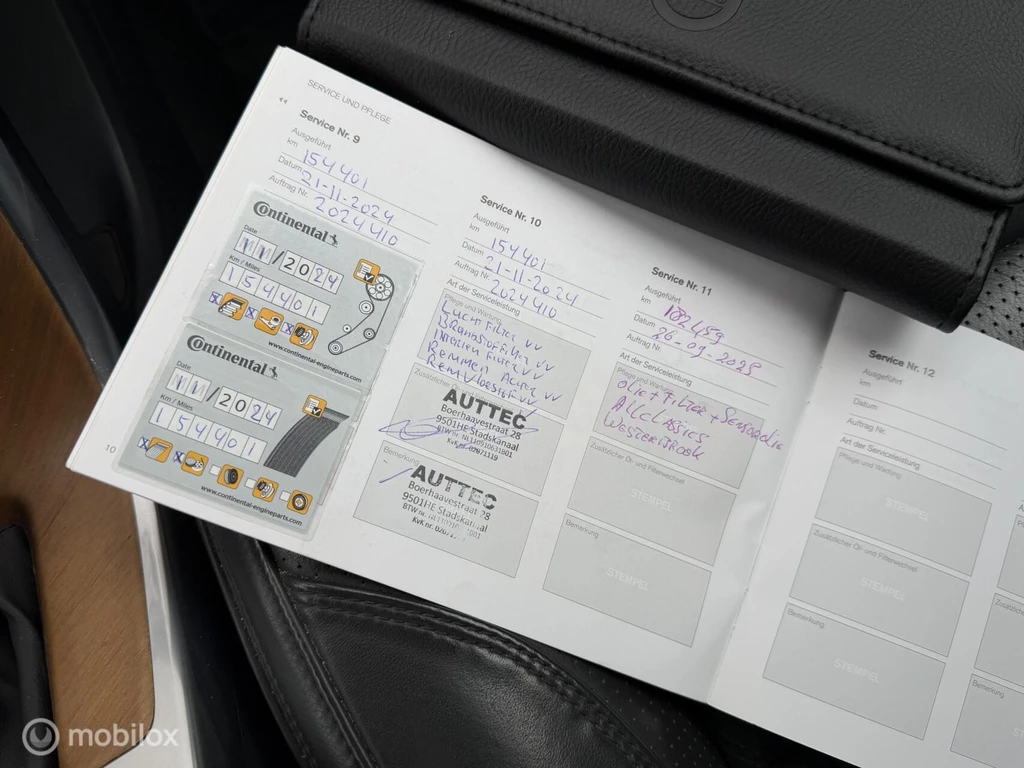 SERVICE UND PFLEGE
Service Nr. 9
Ausgeführt
km 154401
Datum 21-11-2024
Auftrag Nr. 2024410
Continental
Date
11/2024
Km / Miles
154401
www.continental-engineparts.com
Continental
Date
11/2024
Km / Miles
154401
www.continental-engineparts.com
10
Service Nr. 10
Ausgeführt
km 154401
Datum 21-11-2024
Auftrag Nr. 2024410
Art der Serviceleistung
Pflege und Wartung
Lucht Filter VV
Brandstof Filter VV
Interieur Filter VV
Remmen Achter
Remvloeistof VV
AUTTEC
Boerhaavestraat 28
9501HE Stadskanaal
Bemerkung
AUTTEC
Boerhaavestraat 28
9501HE Stadskanaal
Service Nr. 11
Ausgeführt
km
Datum 26-09-2025
Auftrag Nr.
Art der Serviceleistung
Pflege und Wartung
olie + Filter +
Allclassics
Westerbroek
Zusätzlicher Öl- und Filterwechsel
STEMPEL
Bemerkung
STEMPEL
Service Nr. 12
Ausgeführt
km
Datum
Auftrag Nr.
Art der Serviceleistung
Pflege und Wartung
STEMPEL
Zusätzlicher Öl- und Filterwechsel
STEMPEL
Bemerkung
STEMPEL
mobilox